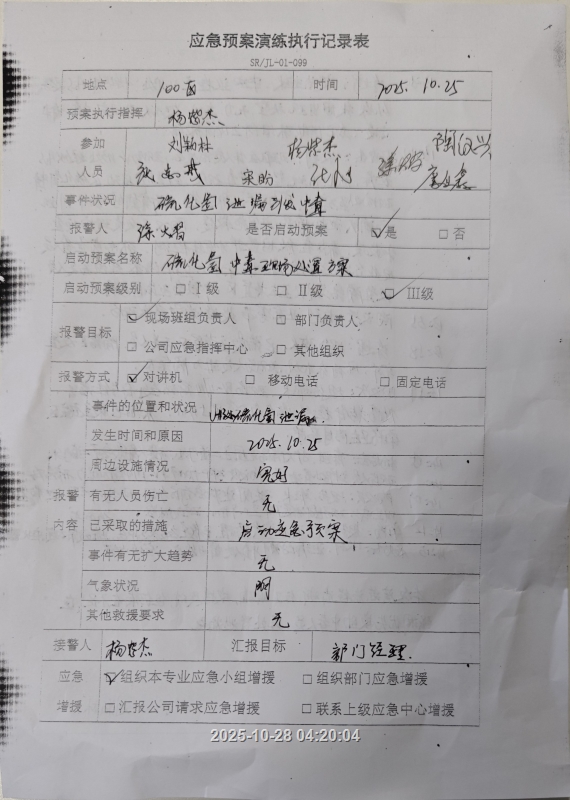 应急预案演练执行记录表
SR/JL-01-099
地点 100区 时间 2025.10.25
预案执行指挥 杨紫杰
参加人员 刘颖林 杨紫杰
事件状况 硫化氢泄漏引发中毒
报警人 是否启动预案 ☑是 □否
启动预案名称 硫化氢中毒现场处置方案
启动预案级别 □Ⅰ级 □Ⅱ级 ☑Ⅲ级
报警目标 ☑现场班组负责人 □部门负责人
□公司应急指挥中心 □其他组织
报警方式 ☑对讲机 □移动电话 □固定电话
报警内容
事件的位置和状况 硫化氢泄漏
发生时间和原因 2025.10.25
周边设施情况 完好
有无人员伤亡 无
已采取的措施 启动应急预案
事件有无扩大趋势 无
气象状况
其他救援要求 无
接警人 杨紫杰 汇报目标 部门经理.
应急增援 ☑组织本专业应急小组增援 □组织部门应急增援
□汇报公司请求应急增援 □联系上级应急中心增援
2025-10-28 04:20:04